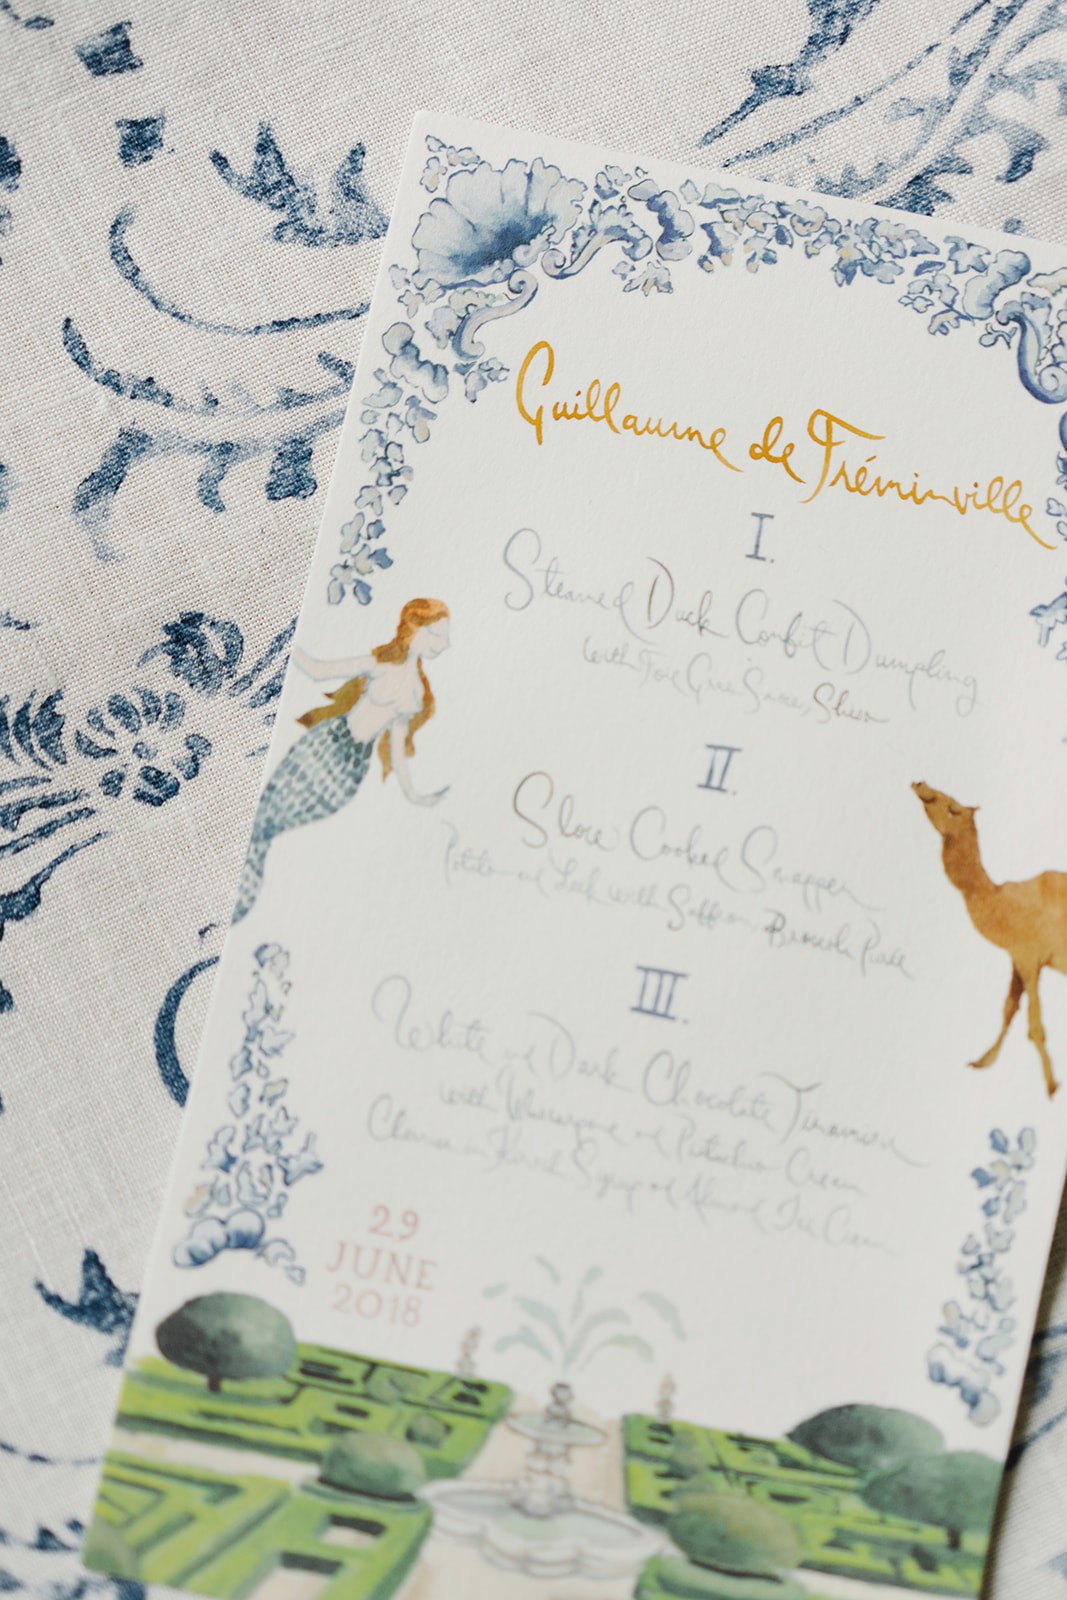 Guillaume de Tréminville
I.
Steamed Duck Confit Dumpling
with Foie Gras Sauce,
II.
Slow Cooked Snapper
Potato and Leek with Saffron, Broccoli Purée
III.
White and Dark Chocolate Tiramisu
with Mascarpone and Pistachio Cream
Cherries in Kirsch Syrup and Almond Ice Cream
29
JUNE
2018